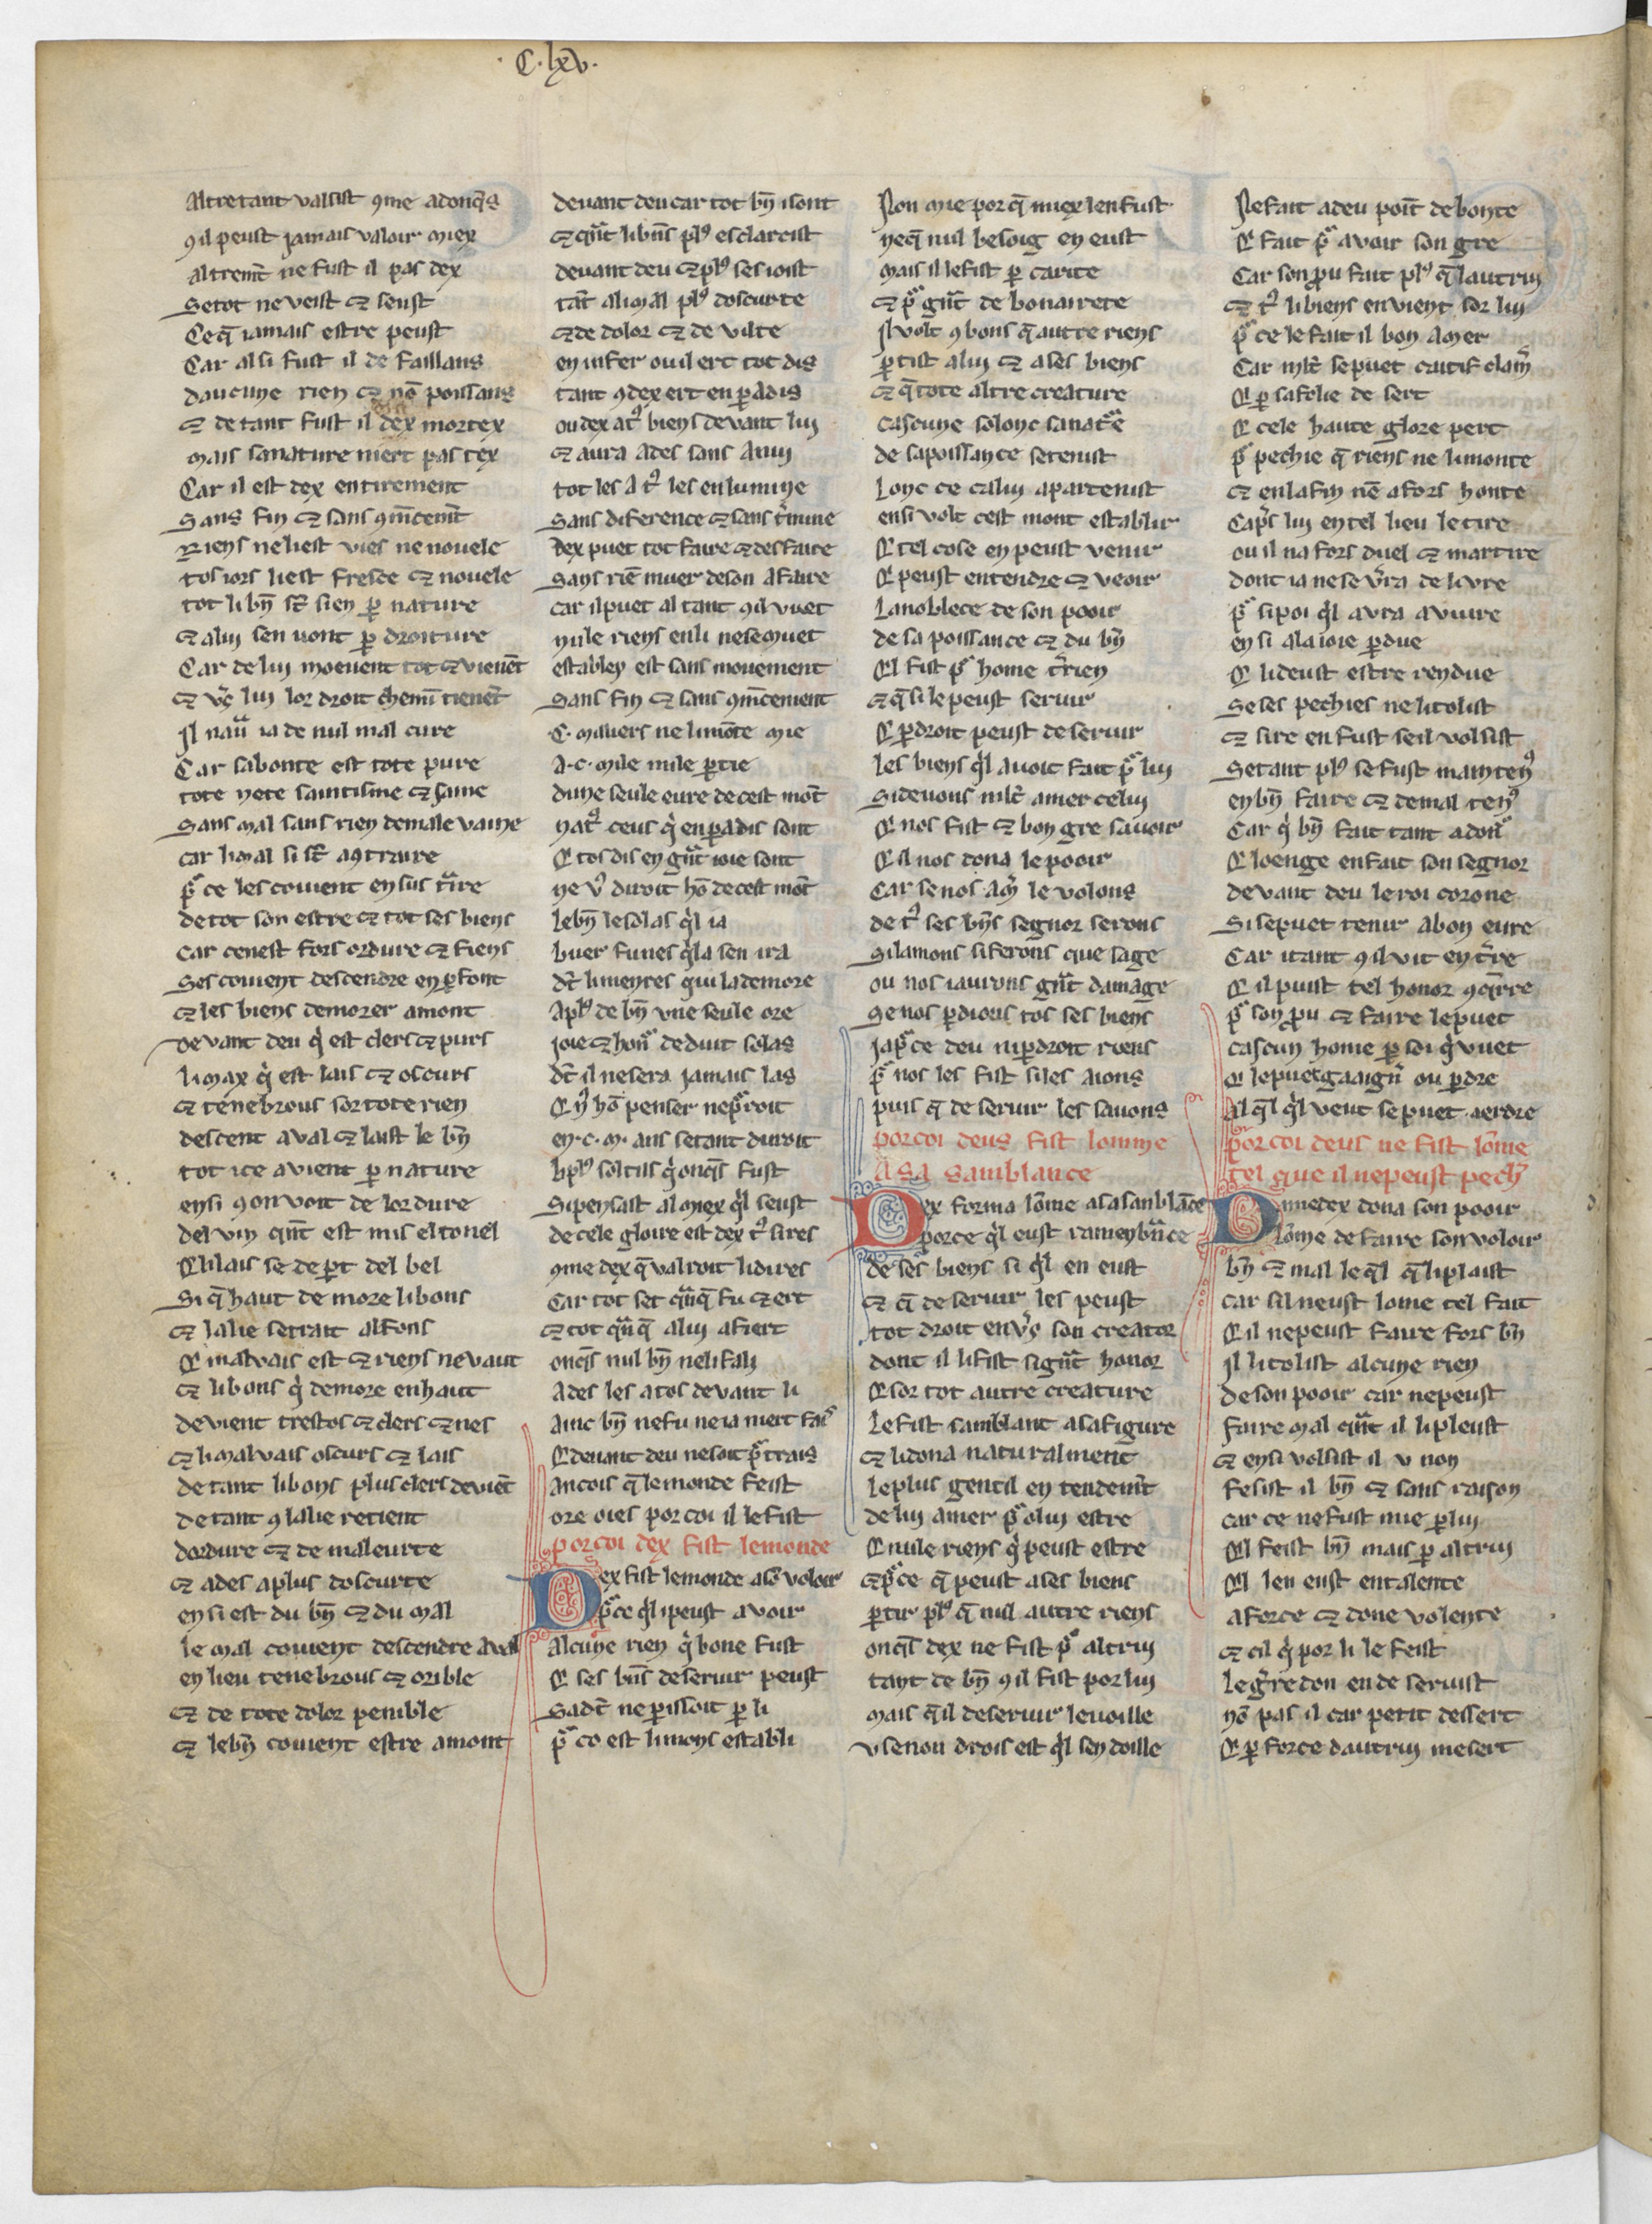 C·lxv·
Altretant valsist 9me adonq̃s
9il peust jamais valoir miex
altremt̃ ne fust il pas dex
Setot ne veist ⁊ seust
Ceq̃ iamais estre peust
Car alsi fust il de faillans
daucune rien ⁊ nõ poissans
⁊ de tant fust il dex mortex
mais sanature niert pas tex
Car il est dex entirement
Sans fin ⁊ sans 9mĩcemt̃
Riens neliest vies ne nouele
tos iors liest fresce ⁊ nouele
tot li bñ st̃ sien ꝑ nature
⁊ alui sen uont ꝑ droiture
Car de lui moeuent tot ⁊ vienẽt
⁊ v̾s lui lor droit chemĩ tienẽt
Il naũ ia de nul mal cure
Car sabonte est tote pure
tote nete saintisme ⁊ sane
Sans mal sans rien demale vaine
car limal si st̃ a9traire
pͣ ce les couient en sus tͣire
detot son estre ⁊ tot ses biens
car cenest fors ordure ⁊ fiens
Ses couient descendre en ꝑfont
⁊ les biens demorer amont
devant deu qͥ est clers ⁊ purs
li max qͥ est lais ⁊ oscurs
⁊ tenebrous sor tote rien
descent aval ⁊ laist le bñ
tot ice avient ꝑ nature
ensi 9on voit de lordure
del vin qñt est mis el tonel
Q̃ li lais se deꝑt del bel
Si q̃ haut demore li bons
⁊ la lie setrait al fons
Q̃ malvais est ⁊ riens ne vaut
⁊ li bons qͥ demore en haut
devient trestos ⁊ clers ⁊ nes
⁊ li malvais oscurs ⁊ lais
de tant li bons plus clers deviẽt
de tant 9 la lie retient
dordure ⁊ de maleurte
⁊ ades aplus doscurte
ensi est du bñ ⁊ du mal
le mal couient descendre aval
en lieu tenebrous ⁊ orible
⁊ de tote dolor penible
⁊ lebñ couient estre amont
devant deu car tot bñ i sont
⁊ qñt li bñs pl9 esclarcist
devant deu ⁊ pl9 ses ioist
tãt ali mal pl9 doscurte
⁊ de dolor ⁊ de vilte
en infer ou il ert tot dis
tant 9 dex ert en ꝑadis
ou dex a t9 biens devant lui
⁊ aura ades sans anui
tot les a t9 les enlumine
Sans diference ⁊ sans t̃mine
dex puet tot faire ⁊ desfaire
Sans riẽ muer de son afaire
car il puet al tant 9il vuet
nule riens en li ne se muet
establey est sans mouement
Sans fin ⁊ sans 9mĩcement
·C· maliers ne li mõte mie
A·c· mile mile ꝑtie
dune seule eure de cest mõt
nat9 ceus qͥ en ꝑadis sont
Q̃ tos dis en gñt ioie sont
ne v9 diroit hõ de cest mõt
le bñ le solas qͥl i a
buer fu nes qͥ la sen ira
dt̃ li meyres qui la demore
A pl9 de bñ vne seule ore
joie ⁊ hoñ deduit solas
dt̃ il ne sera jamais las
Q̃ ñ hõ penser ne pͣroit
en·c·m· ans se tant duroit
li pl9 soltils qͥ onq̃s fust
Si pensast al miex qͥl seust
de cele gloire est dex t9 sires
9me dex q̃ valroit li dires
Car tot set qñq̃ fu ⁊ ert
⁊ tot qñq̃ a lui afiert
onq̃s nul bñ ne li fali
Ades les a tos devant li
Ainc bñ ne fu ne ia niert fais
Q̃ devant deu ne soit pͣtrais
Ancois q̃ le monde feist
ore oies por coi il le fist
porcoi dex fist lemonde
Dex fist lemonde a sõ voloir
pͣ ce qͥl i peust avoir
alcune rien qͥ bone fust
Q̃ ses bñs deseruir peust
Sadt̃ ne ꝑissoit ꝑ li
pͣ co est li mons establi
Non mie por q̃ miex len fust
neq̃ nul besoig en eust
mais il le fist ꝑ carite
⁊ pͣ gñt de bonairete
Il volt 9 bons q̃ autre riens
ꝑtist a lui ⁊ a ses biens
⁊ q̃ tote altre creature
cascune solonc sa natͣe
de sa poissance se tenist
Lonc ce ca lui apartenist
ensi volt cest mont establir
Q̃ tel cose en peust venir
Q̃ peust entendre ⁊ veoir
La noblece de son pooir
de sa poissance ⁊ du bñ
Q̃l fist pͣ home t̃rien
⁊ q̃ si le peust seruir
Q̃ ꝑ droit peust deseruir
les biens qͥl avoit fait pͣ lui
Si deuons mlt̃ amer celui
Q̃ nos fist ⁊ bon gre savoir
Q̃ il nos dona le pooir
Car se nos am̃ le volons
de t9 ses bñs segnor serons
Silamons si ferons que sage
ou nos i aurons gñt damage
Se nos ꝑdions tos ses biens
ja pͣ ce deu ni ꝑdroit riens
pͣ nos les fist si les aions
puis q̃ deseruir les savons
porcoi deus fist lomme
A sa samblance
Dex forma lõme a sa sanblãce
porce qͥl eust ramenbr̃ce
de ses biens si qͥl en eust
⁊ q̃ deseruir les peust
tot droit en v̾s son creator
dont il li fist si gñt honor
Q̃ sor tot autre creature
Le fist samblant a sa figure
⁊ li dona naturalment
le plus gentil en tendemt̃
de lui amer pͣ o lui estre
Q̃ nule riens qͥ peust estre
⁊ pͣ ce q̃ peust a ses biens
ꝑtir pl9 q̃ nul autre riens
onq̃s dex ne fist pͣ altrui
tant de bñ 9il fist por lui
mais q̃ il deseruir le voille
v se non drois est qͥl sen doille
Ne fait a deu poĩt de bonte
Q̃ fait pͣ avoir son gre
Car son ꝓu fait pl9 q̃ lautrui
⁊ t9 li biens en vient sor lui
pͣ ce le fait il bon amer
Car mlt̃ se puet caitif clam̃
Q̃ ꝑ sa folie de sert
Q̃ cele haute glore pert
pͣ pechie q̃ riens ne li monte
⁊ en la fin nẽ a fors honte
Cap̾s lui en tel lieu le tire
ou il na fors duel ⁊ martire
dont ia ne se v̾ra de livre
pͣ si poi qͥl avra a vivre
ensi a la ioie ꝑdue
Q̃ li deust estre rendue
Se ses pechies ne li tolist
⁊ sire en fust seil volsist
Se tant pl9 se fust mainten9
en bñ faire ⁊ de mal ten9
Car qͥ bñ fait tant a donͣ
Q̃ loenge en fait son segnor
devant deu le roi corone
Si se puet tenir a bon eure
Car itant 9il vit en t̃re
Q̃ il puist tel honor 9q̃rre
pͣ son ꝓu ⁊ faire le puet
cascun home ꝑ soi qͥ vuet
Q̃ le puet gaaigñ ou ꝑdre
Al q̃l qͥl veut se puet aerdre
por coi deus ne fist lõme
tel que il ne peust pech̃
Damedex dona son pooir
A lõme de faire son voloir
bñ ⁊ mal le q̃l q̃ li plaist
car sil neust lome tel fait
Q̃ il ne peust faire fors bñ
Il li tolist alcune rien
de son pooir car ne peust
faire mal qñt il li pleust
⁊ ensi volsist il v non
fesist il bñ ⁊ sans raison
car ce ne fust mie ꝑ lui
Q̃l feist bñ mais ꝑ altrui
Q̃l len eust entalente
a force ⁊ done volente
⁊ cil qͥ por li le feist
le gr̃edon en de seruist
nõ pas il car petit dessert
Q̃ ꝑ force dautrui mesert